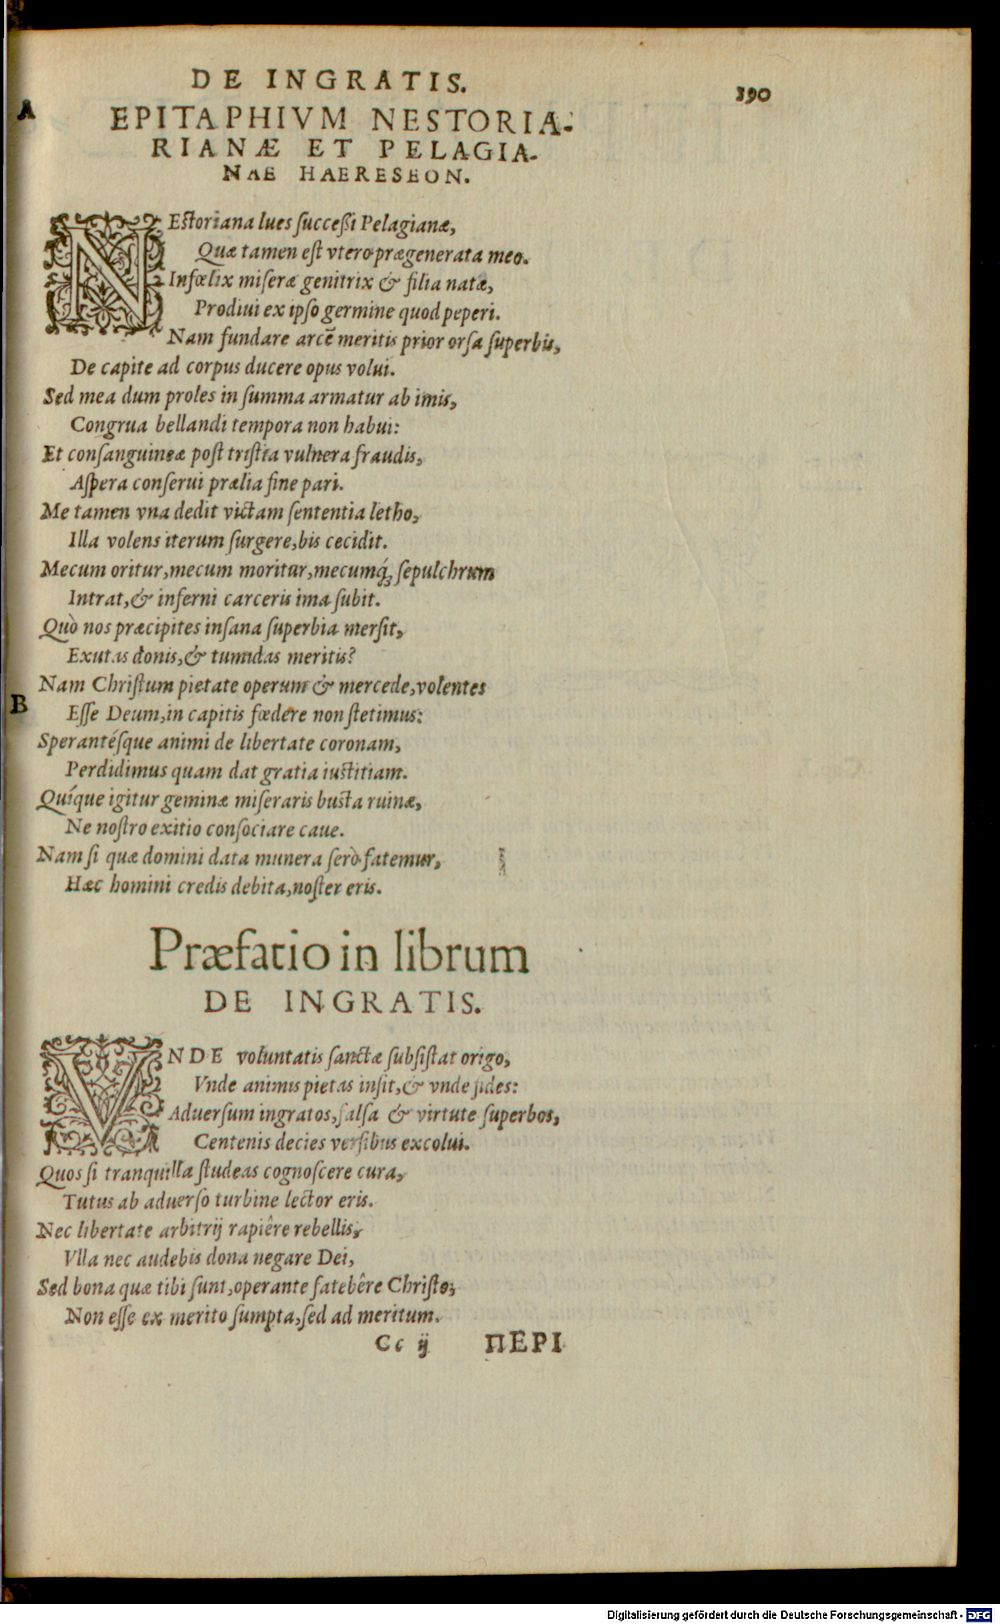 DE INGRATIS.
190
A
EPITAPHIVM NESTORIA-
RIANÆ ET PELAGIA-
NAE HAERESEON.
NEſtoriana lues ſucceßi Pelagianæ,
Quæ tamen eſt vtero prægenerata meo.
Infœlix miſeræ genitrix & filia natæ,
Prodiui ex ipſo germine quod peperi.
Nam fundare arcẽ meritis prior orſa ſuperbis,
De capite ad corpus ducere opus volui.
Sed mea dum proles in ſumma armatur ab imis,
Congrua bellandi tempora non habui:
Et conſanguineæ poſt triſtia vulnera fraudis,
Aſpera conſerui prælia fine pari.
Me tamen vna dedit victam ſententia letho,
Illa volens iterum ſurgere, bis cecidit.
Mecum oritur, mecum moritur, mecumq́ ſepulchrum
Intrat, & inferni carceris ima ſubit.
Quò nos præcipites inſana ſuperbia merſit,
Exutas donis, & tumidas meritis?
Nam Chriſtum pietate operum & mercede, volentes
B
Eſſe Deum, in capitis fœdere non ſtetimus:
Sperantéſque animi de libertate coronam,
Perdidimus quam dat gratia iuſtitiam.
Quíque igitur geminæ miſeraris buſta ruinæ,
Ne noſtro exitio conſociare caue.
Nam ſi quæ domini data munera ſerò fatemur,
Hæc homini credis debita, noſter eris.
Præfatio in librum
DE INGRATIS.
VNDE voluntatis ſanctæ ſubſiſtat origo,
Vnde animis pietas inſit, & vnde fides:
Aduerſum ingratos, falſa & virtute ſuperbos,
Centenis decies verſibus excolui.
Quos ſi tranquilla ſtudeas cognoſcere cura,
Tutus ab aduerſo turbine lector eris.
Nec libertate arbitrij rapiêre rebellis,
Vlla nec audebis dona negare Dei,
Sed bona quæ tibi ſunt, operante fatebêre Chriſto,
Non eſſe ex merito ſumpta, ſed ad meritum.
Cc ij ΠΕΡΙ
Digitalisierung gefördert durch die Deutsche Forschungsgemeinschaft - DFG